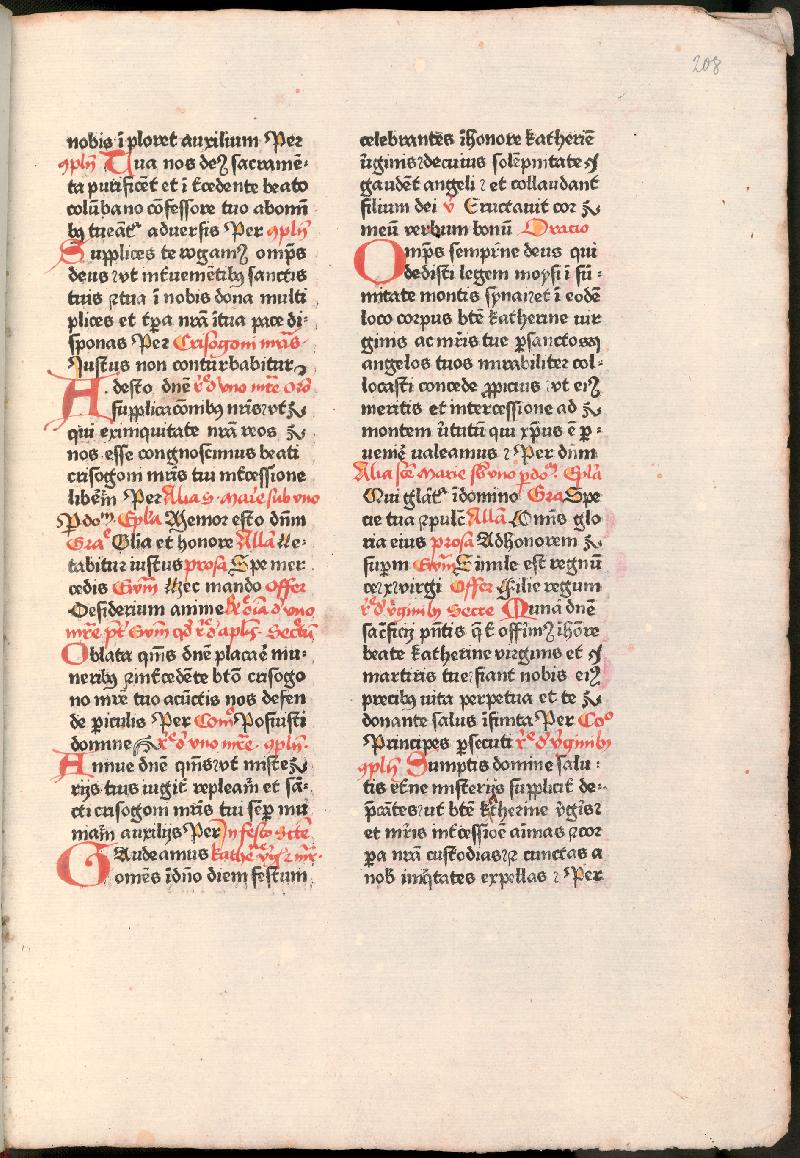 208
nobis īploret auxilium Per
ꝯplꝫ Tua nos deꝫ sacramē-
ta purificēt et ī tcedente beato
colūbano cōfessore tuo abomī
bꝫ tueāt aduersis Per ꝯplꝫ
Supplices te rogamꝫ omps
deus ut intuementibꝫ sanctis
tuis ⁊tua ī nobis dona multi
plices et tꝑa nr̄a ītua pace di-
sponas Per Crisogoni mr̄is
Justus non conturbabitur
Adesto dnē rᵒ d uno mr̄e Orō
supplicacōnibus nr̄is ut ⁊
qui eximquitate nr̄a reos ⁊
nos esse congnoscimus beati
crisogoni mr̄is tui intcessione
libēm Per Alia s. Marie sub uno
Ꝑ doᵐ. Epl̄a Memor esto dn̄m
Graᵉ Glia et honore All̄a Le-
tabitur iustus prosa Spe mer
cedis Ewm Nec mando Offer
Desiderium anime Rᵒ oīa d uno
mr̄e pt Ewm qd rᵒ d apl̄is. Sectū
Oblata qms dnē placa ē mu-
neribꝫ ⁊intcedēte btō crisogo
no mr̄e tuo acūctis nos defen
de ꝑiculis Per Comᵒ Posuisti
domine rᵒ d uno mr̄e. ꝯplꝫ.
Annue dnē qms ut miste⁊
rijs tuis iugit repleam̄ et sā-
cti crisogoni mr̄is tui seꝑ mu
niam̄ auxilijs Per In festo Scte
Gaudeamus kathe virg ⁊ mr̄.
omēs īdn̄o diem festum
celebrantes īhonore katherīe
ūginis ⁊ decuius solēpnitate ⁊
gaudēt angeli ⁊ et collaudant
filium dei v̄ Eructauit cor ⁊
meū verbum bonū Oratio
Omps sempīne deus qui
dedisti legem moysi ī sū-
mitate montis synai ⁊et ī eodē
loco corpus btē katherine uir
ginis ac mr̄is tue ꝑsanctos
angelos tuos mirabiliter col-
locasti concede ꝓpicius ut eiꝫ
meritis et intercessione ad ⁊
montem ūtutū qui xp̄us ē ꝑ-
uenīe ualeamus ⁊ Per dnm
Alia scē Marie sb uno ꝑ doᵐ. Epl̄a
Qui glāt īdomino Gra Spe
cie tua ⁊pulc̄ All̄a Omīs glo
ria eius prosa Adhonorem ⁊
suꝑm Ewm Simile est regnū
ce ⁊ x virgi Offer Filie regum
rᵒ d v̄ginibꝫ Secre Munā dnē
sacficij pn̄tis qt̄ offimꝫ ihōre
beate katherine uirginis et ⁊
martiris tue fiant nobis eiꝫ
precibꝫ uita perpetua et te ⁊
donante salus īfinita Per Coᵒ
Principes ꝑsecuti rᵒ d v̄ginibꝫ
ꝯplꝫ Sumptis domine salu-
tis etn̄e misterijs supplicit̄ de-
p̄cātes ut btē katherine v̄gis⁊
et mr̄is intcessiōe aīmas ⁊cor
ꝑa nr̄a custodias ⁊ ⁊ cunctas a
nob iniqtates expellas ⁊ Per